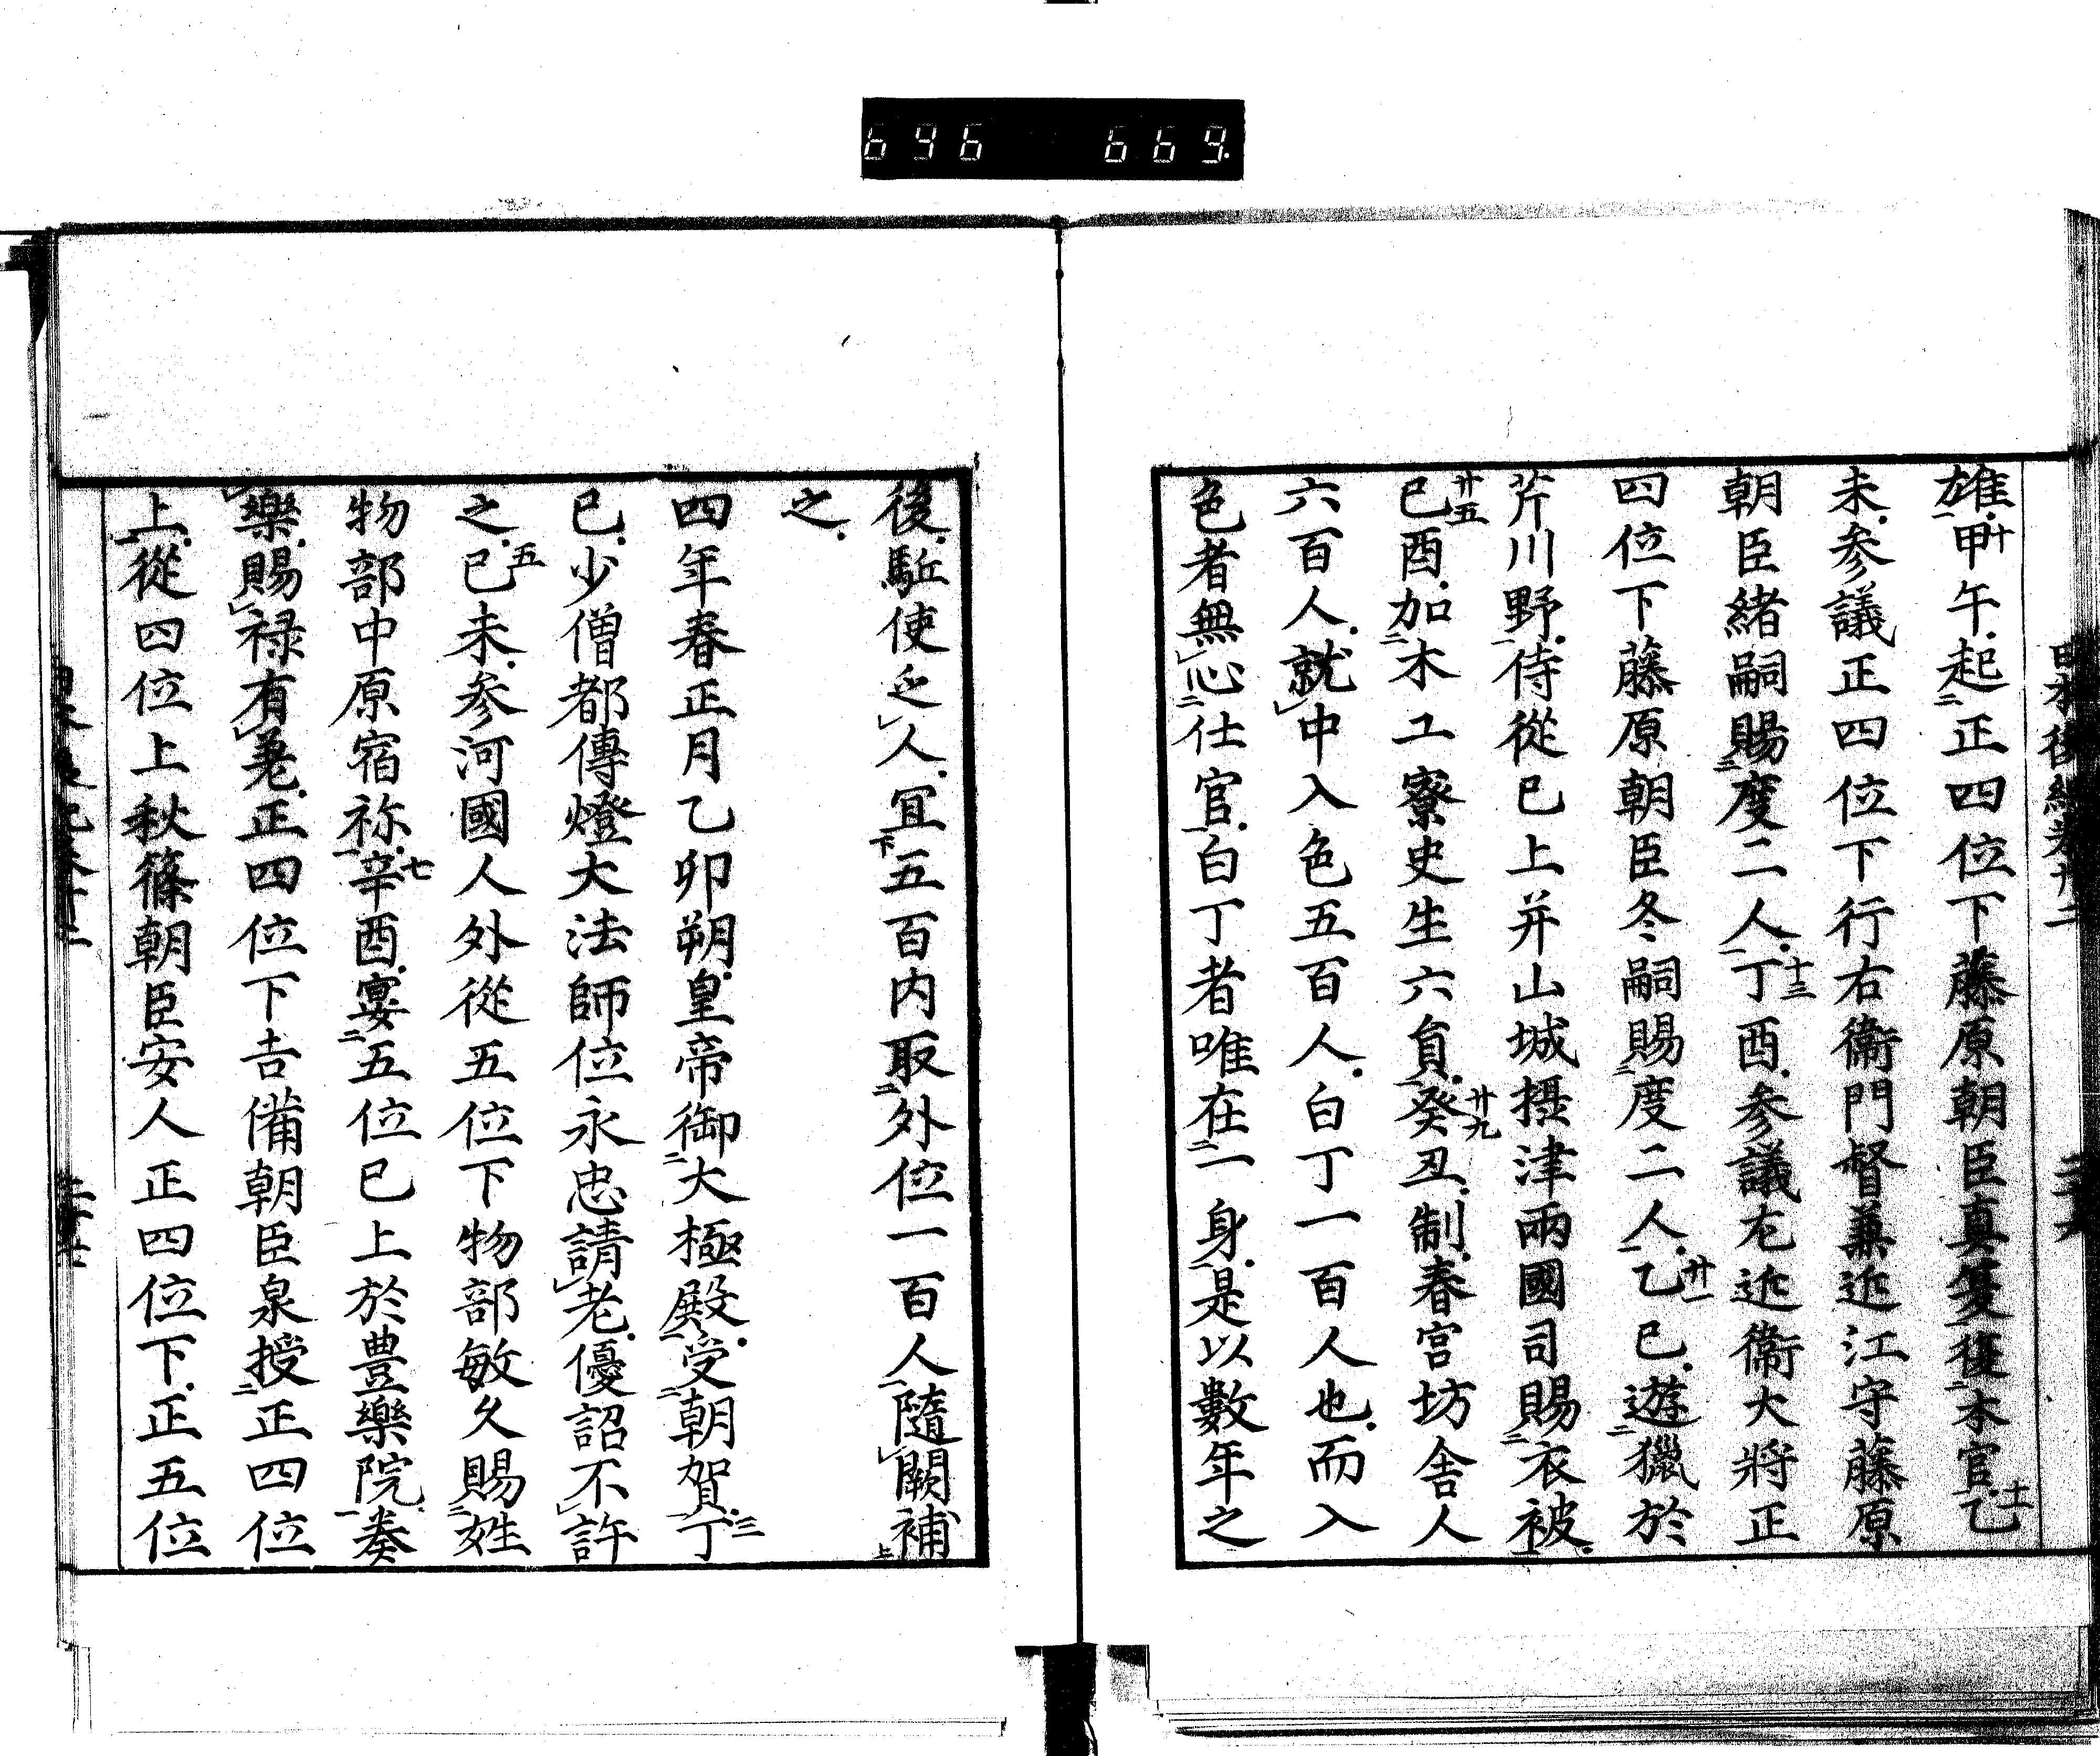 696 669.
日本後紀卷廿二
雄甲午起正四位下藤原朝臣真夏復本官乙
未参議正四位下行右衛門督兼近江守藤原
朝臣緒嗣賜度二人丁酉参議左近衛大將正
四位下藤原朝臣冬嗣賜度二人乙巳遊獵於
芹川野侍從已上并山城摂津兩國司賜衣被
己酉加木工寮史生六負癸丑制春宮坊舎人
六百人就中入色五百人白丁一百人也而入
色者無心仕官白丁者唯在一身是以數年之
後駈使乏人冝五百内取外位一百人隨闕補
之
四年春正月乙卯朔皇帝御大極殿受朝賀丁
巳少僧都傳燈大法師位永忠請老優詔不許
之己未参河國人外從五位下物部敏久賜姓
物部中原宿祢辛酉宴五位已上於豊樂院奏
樂賜禄有差正四位下吉備朝臣泉授正四位
上從四位上秋篠朝臣安人正四位下正五位